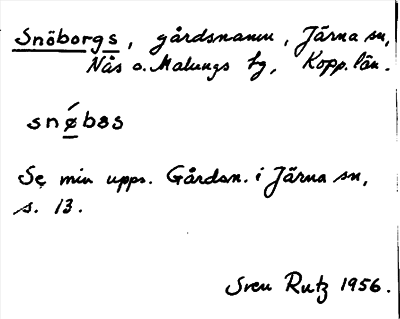 Snöborgs, gårdsnamn, Järna sn,
Nås o. Malungs tg, Kopp. län.
snǿ̱bəs
Se min upps. Gårdsn. i Järna sn,
s. 13.
Sven Rutz 1956.